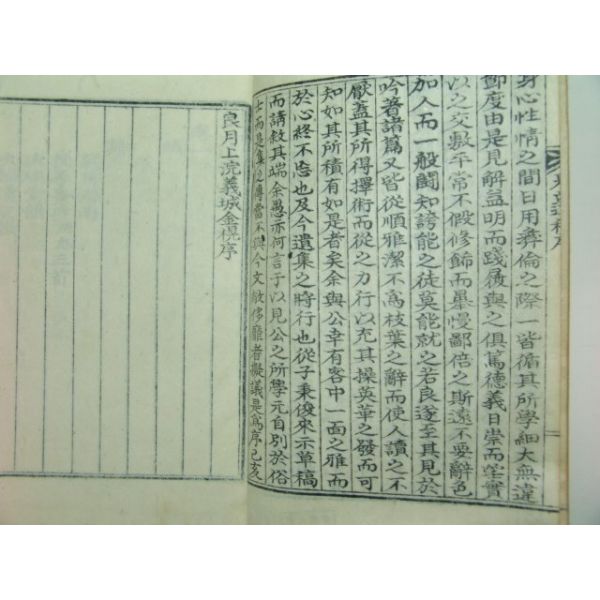 身心性情之間日用彛倫之際一皆循其所學細大無違
節度由是見解益明而踐履與之俱篤德義日崇而望實
以之交敷平常不假修餙而暴慢鄙倍之斯遠不要辭色
加人而一般鬪知誇能之徒莫能就之若良遂至其見於
吟著諸篇又皆從順雅潔不爲枝葉之辭而使人讀之不
厭盖其所得擇術而從之力行以充其操英華之發而可
知如其所積有如是者矣余與公幸有客中一面之雅而
於心終不忘也及今遺集之將行也從子秉俊來示草稿
而請敍其端余愚亦何言于以見公之所學元自別於俗
士而是集之傳當不與今文敝侈靡者擬議是爲序己亥
良月上浣義城金榥序